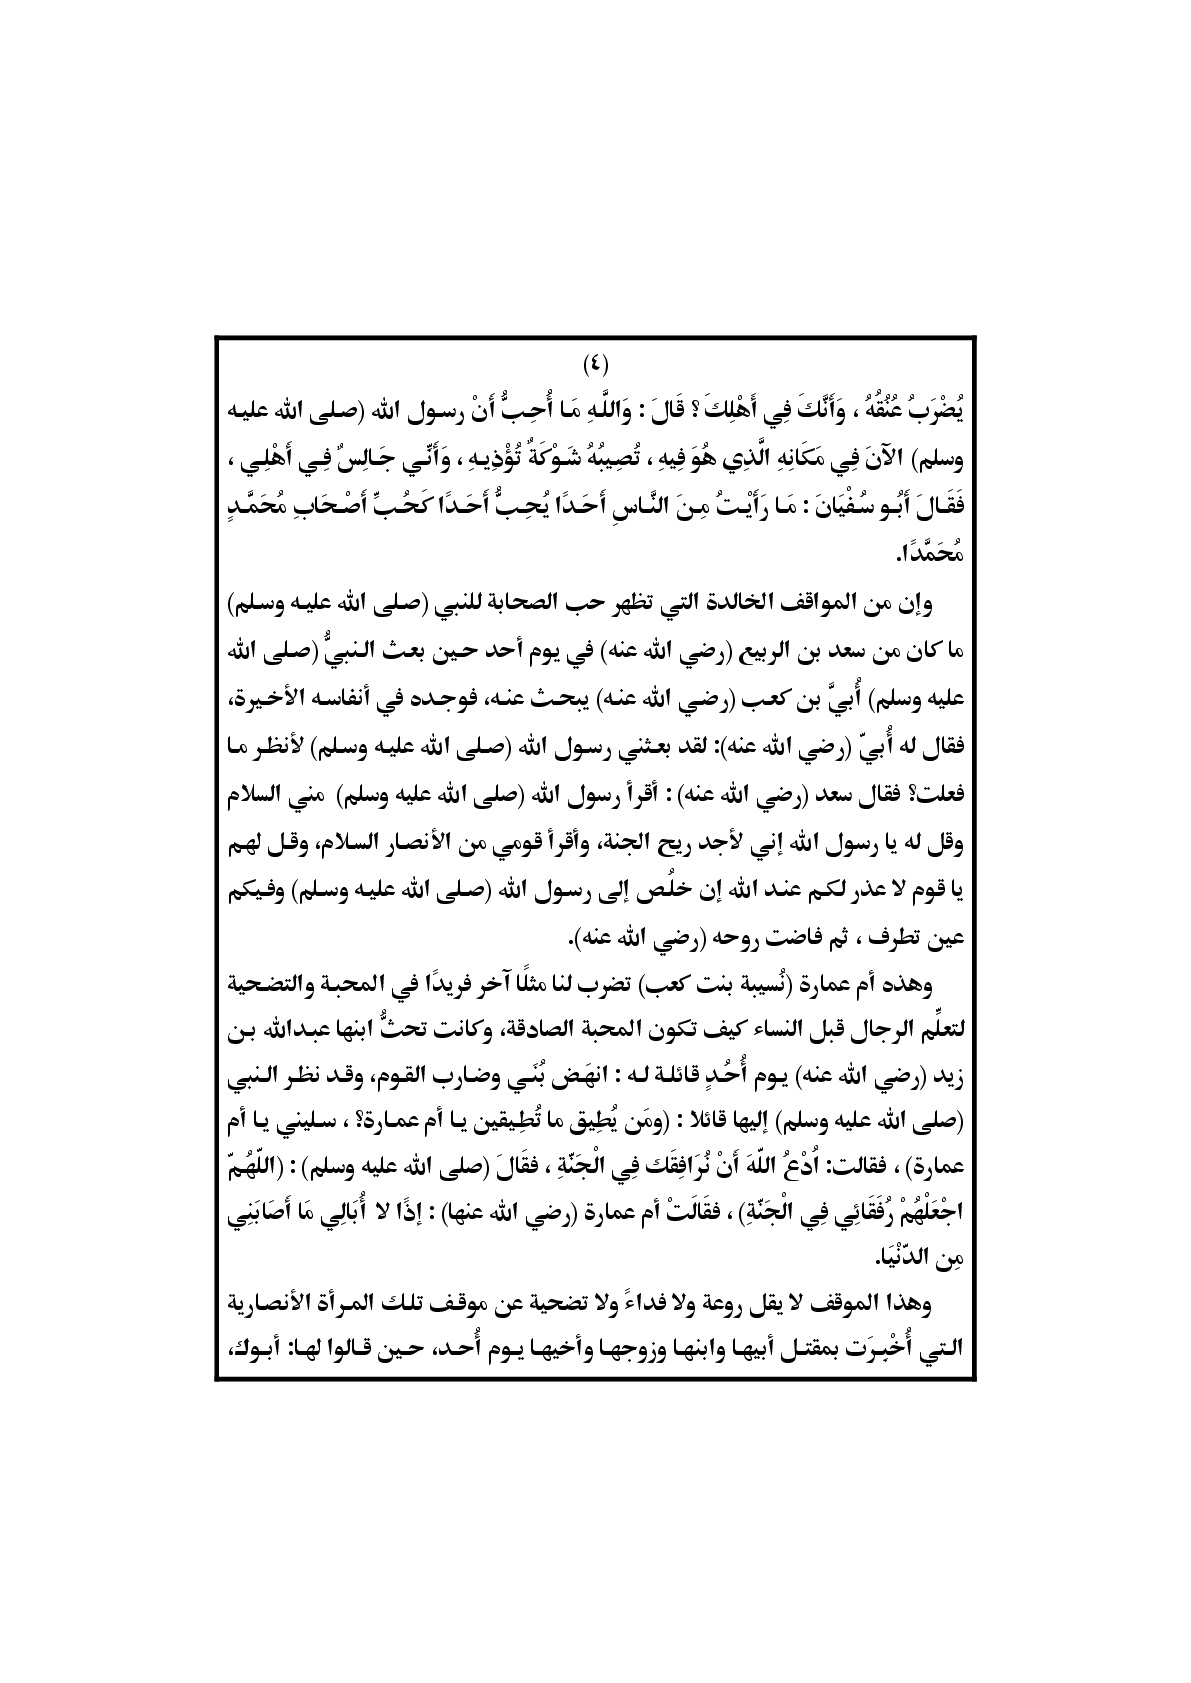 (٤)
يُضْرَبُ عُنُقُهُ ، وَأَنَّكَ فِي أَهْلِكَ ؟ قَالَ : وَاللَّهِ مَا أُحِبُّ أَنْ رسول الله (صلى الله عليه
وسلم) الآنَ فِي مَكَانِهِ الَّذِي هُوَ فِيهِ ، تُصِيبُهُ شَوْكَةٌ تُؤْذِيهِ ، وَأَنِّي جَالِسٌ فِي أَهْلِي ،
فَقَالَ أَبُو سُفْيَانَ : مَا رَأَيْتُ مِنَ النَّاسِ أَحَدًا يُحِبُّ أَحَدًا كَحُبِّ أَصْحَابِ مُحَمَّدٍ
مُحَمَّدًا.
وإن من المواقف الخالدة التي تظهر حب الصحابة للنبي (صلى الله عليه وسلم)
ما كان من سعد بن الربيع (رضي الله عنه) في يوم أحد حين بعث النبيُّ (صلى الله
عليه وسلم) أُبيَّ بن كعب (رضي الله عنه) يبحث عنه، فوجده في أنفاسه الأخيرة،
فقال له أُبيّ (رضي الله عنه): لقد بعثني رسول الله (صلى الله عليه وسلم) لأنظر ما
فعلت؟ فقال سعد (رضي الله عنه) : أقرأ رسول الله (صلى الله عليه وسلم) مني السلام
وقل له يا رسول الله إني لأجد ريح الجنة، وأقرأ قومي من الأنصار السلام، وقل لهم
يا قوم لا عذر لكم عند الله إن خلُص إلى رسول الله (صلى الله عليه وسلم) وفيكم
عين تطرف ، ثم فاضت روحه (رضي الله عنه).
وهذه أم عمارة (نُسيبة بنت كعب) تضرب لنا مثلًا آخر فريدًا في المحبة والتضحية
لتعلِّم الرجال قبل النساء كيف تكون المحبة الصادقة، وكانت تحثُّ ابنها عبدالله بن
زيد (رضي الله عنه) يوم أُحُدٍ قائلة له : انهَض بُنَي وضارب القوم، وقد نظر النبي
(صلى الله عليه وسلم) إليها قائلا : (ومَن يُطِيق ما تُطِيقين يا أم عمارة؟ ، سليني يا أم
عمارة) ، فقالت: اُدْعُ اللّهَ أَنْ نُرَافِقَك فِي الْجَنّةِ ، فقَالَ (صلى الله عليه وسلم) : (اللّهُمّ
اجْعَلْهُمْ رُفَقَائِي فِي الْجَنّةِ) ، فقَالَتْ أم عمارة (رضي الله عنها) : إذًا لا أُبَالِي مَا أَصَابَنِي
مِن الدّنْيَا.
وهذا الموقف لا يقل روعة ولا فداءً ولا تضحية عن موقف تلك المرأة الأنصارية
التي أُخْبِرَت بمقتل أبيها وابنها وزوجها وأخيها يوم أُحد، حين قالوا لها: أبوك،